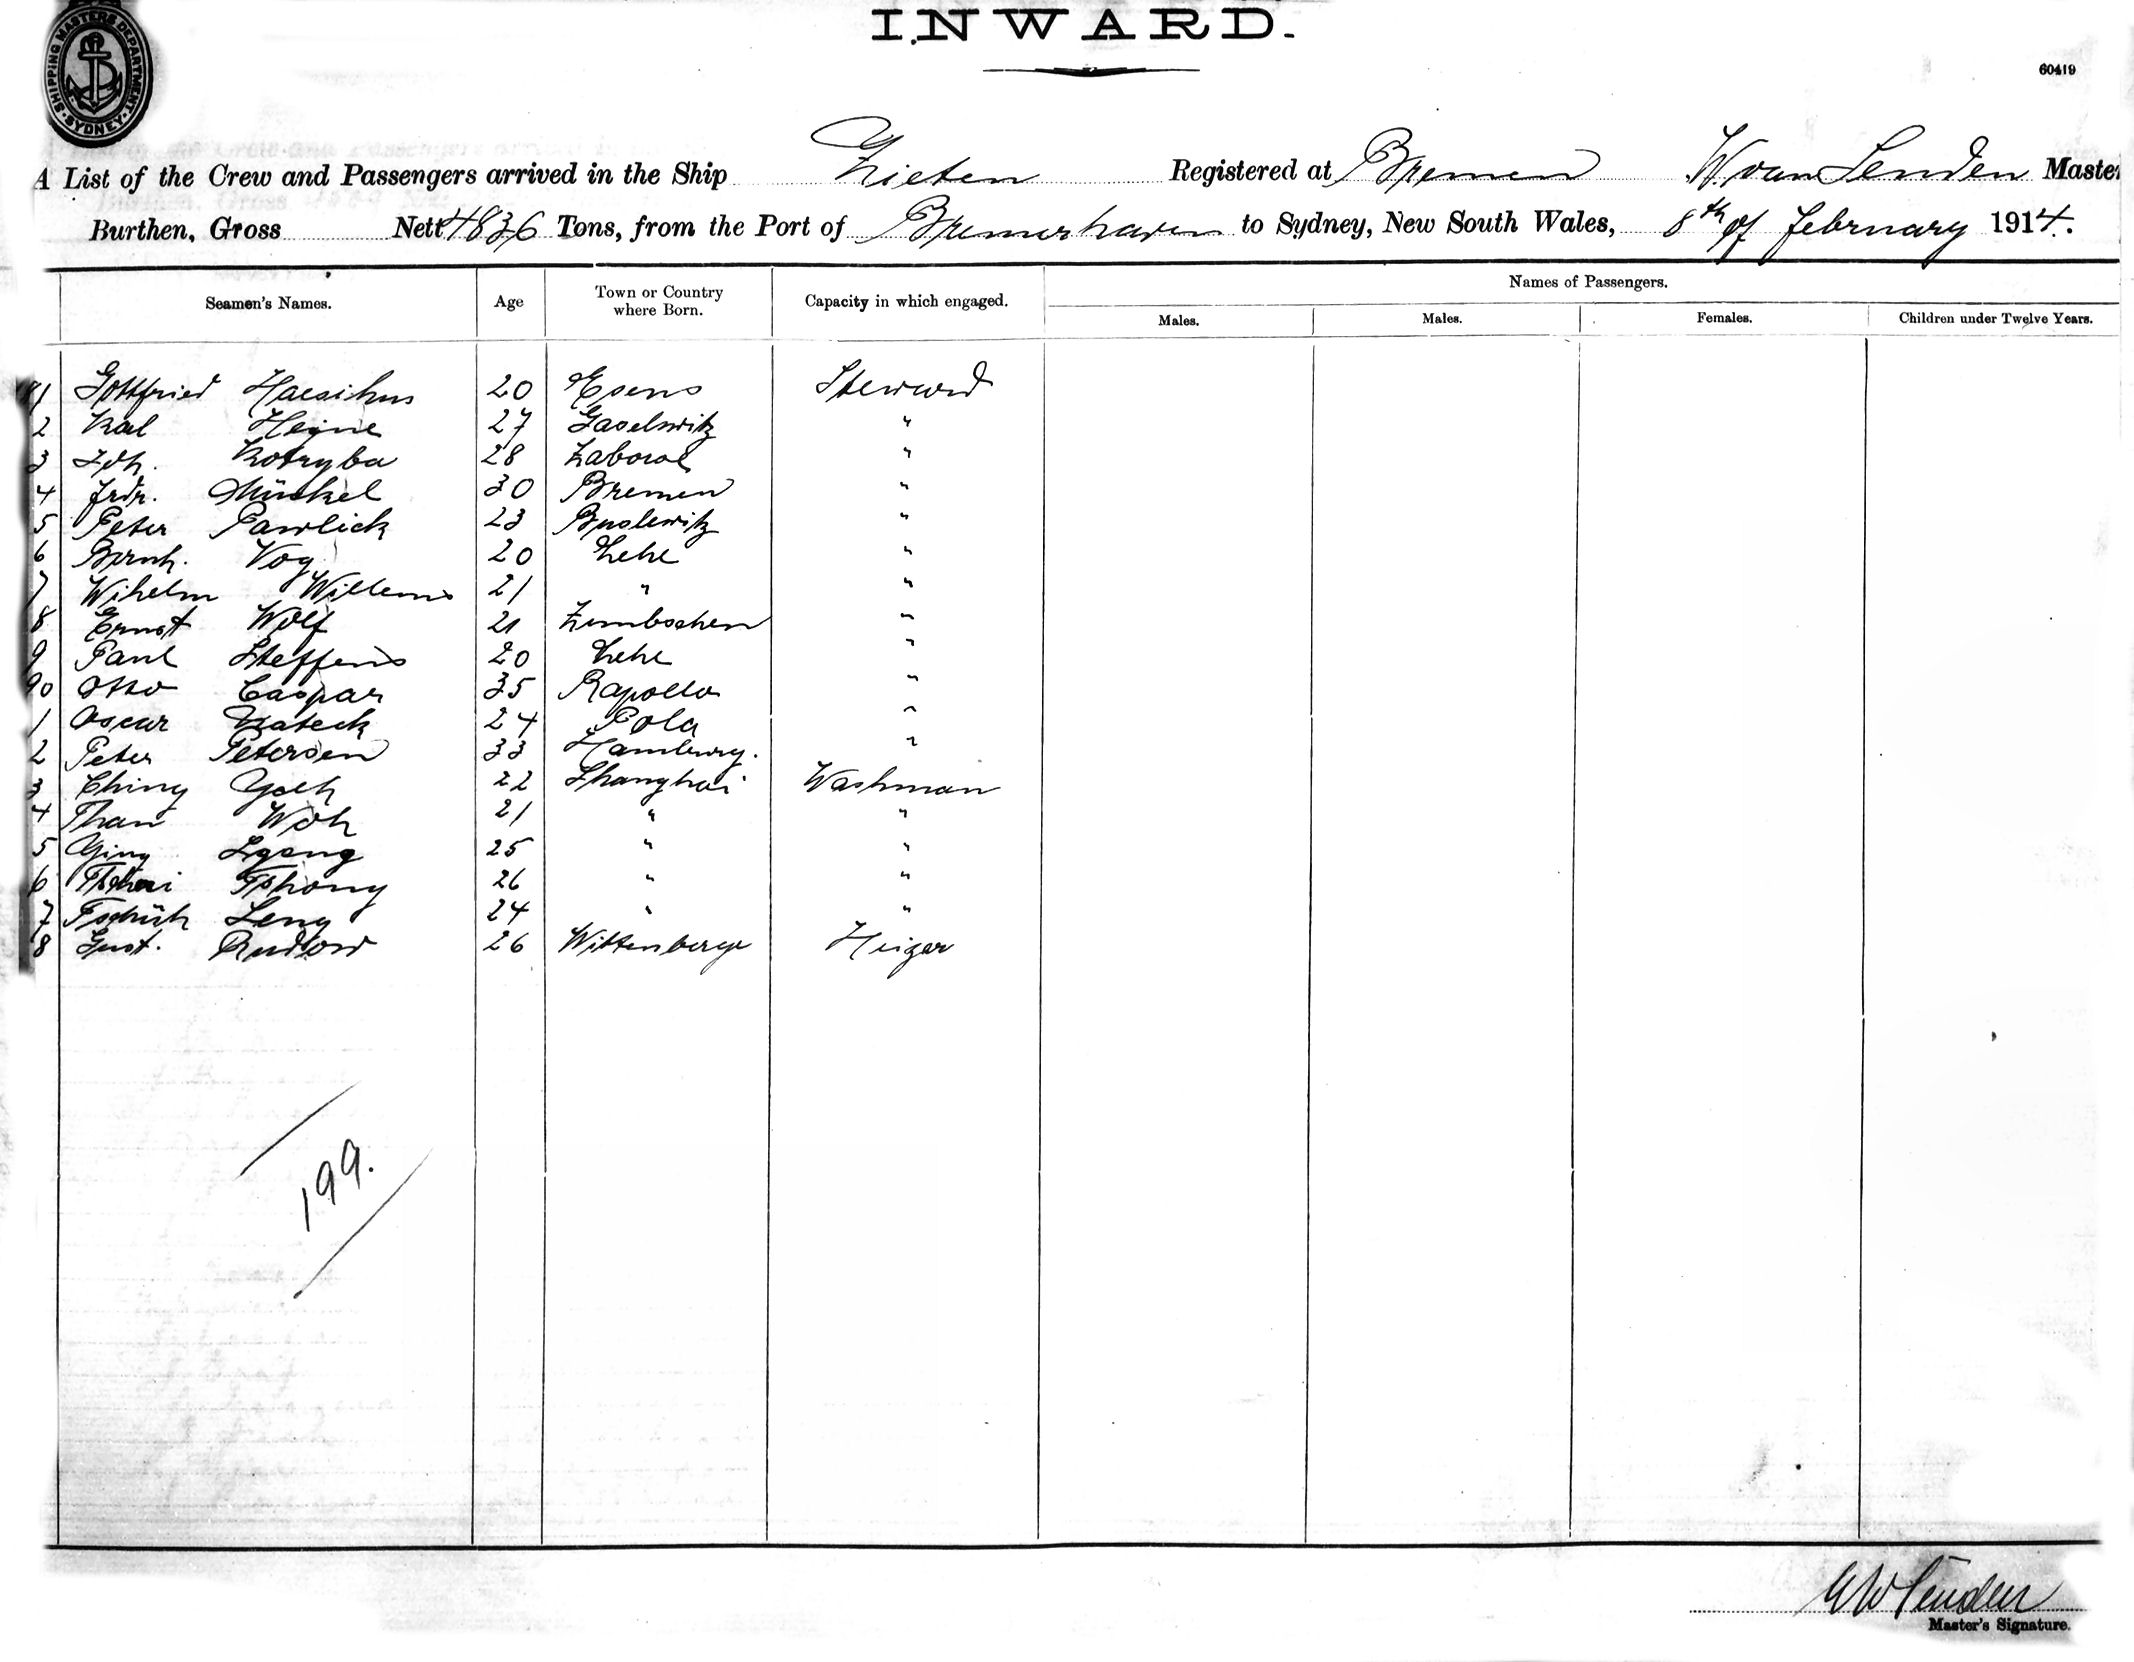 INWARD.
SHIPPING MASTERS DEPARTMENT SYDNEY
60419
A List of the Crew and Passengers arrived in the Ship Zieten Registered at Bremen W. van Senden Master
Burthen, Gross Nett 4836 Tons, from the Port of Bremerhaven to Sydney, New South Wales, 8th of february 1914.
Names of Passengers.
Seamen's Names. Age Town or Country where Born. Capacity in which engaged. Males. Males. Females. Children under Twelve Years.
81 Gottfried 20 Esens Steward
2 Karl Heyne 27 "
3 Joh. Kotryba 28 Zaborol "
4 Frdr. Münkel 30 Bremen "
5 Peter Pawlick 23 "
6 Bernh. Vog 20 Lehe "
7 Wihelm Willems 21 " "
8 Ernst Wolf 21 "
9 Paul Steffens 20 Lehe "
90 Otto Caspar 35 Rapollo "
1 Oscar 24 Pola "
2 Peter Petersen 33 Hamburg. "
3 Ching Yoeh 22 Shanghai Washman
4 Than Woh 21 " "
5 Ying 25 " "
6 Tshong 26 " "
7 Leng 24 " "
8 Gust. Rudow 26 Wittenberge Heizer
199.
Senden
Master's Signature.